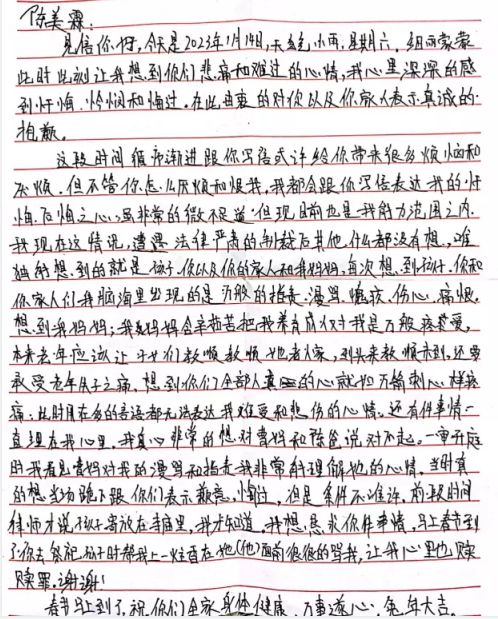 陈美霖:
见信你好,今天是2023年1月14日,天气小雨,星期六,细雨蒙蒙
此时此刻让我想到你们悲痛和难过的心情,我心里深深的感
到忏悔、怜悯和悔过。在此由衷的对你以及你家人表示真诚的
抱歉。
这段时间循序渐进跟你写信或许给你带来很多烦恼和
厌烦,但不管你怎么厌烦和恨我,我都会跟你写信表达我的忏
悔。忏悔之心虽非常的微不足道,但现目前也是我能力范围之内。
我现在这情况,遭遇法律严肃的制裁后其他什么都没有想,唯
独能想到的就是孩子、你以及你的家人和我妈妈,每次想到孩子、你和
你家人们我脑海里出现的是万般的指责、漫骂、愤疾、伤心、痛恨。
想到我妈妈:我妈妈会辛勤苦把我养育成人对我是万般疼爱,
本来去年应该让子女们孝顺孝顺她老人家,到头来孝顺未到,还要
承受老年失子之痛。想到你们全部人真的心就如万箭刺心一样疼
痛,此时用在多的言语都无法表达我难受和悲伤的心情。还有件事情一
直埋在我心里,我真心非常的想对曹妈和陈爸说对不起。一审开庭
时我看见曹妈对我的漫骂和指责我非常能理解她的心情,当时真
的想当场跪下跟你们表示歉意、悔过,但是条件不准许。前段时间
律师才说孩子寄放在寺庙里,我才知道。我想恳求你件事情,马上春节到
了你去祭祀孩子时帮我上一炷香在她(他)面前狠狠的骂我,让我心里也赎
赎罪。谢谢!
春节马上到了,祝你们全家身体健康、万事遂心、兔年大吉。